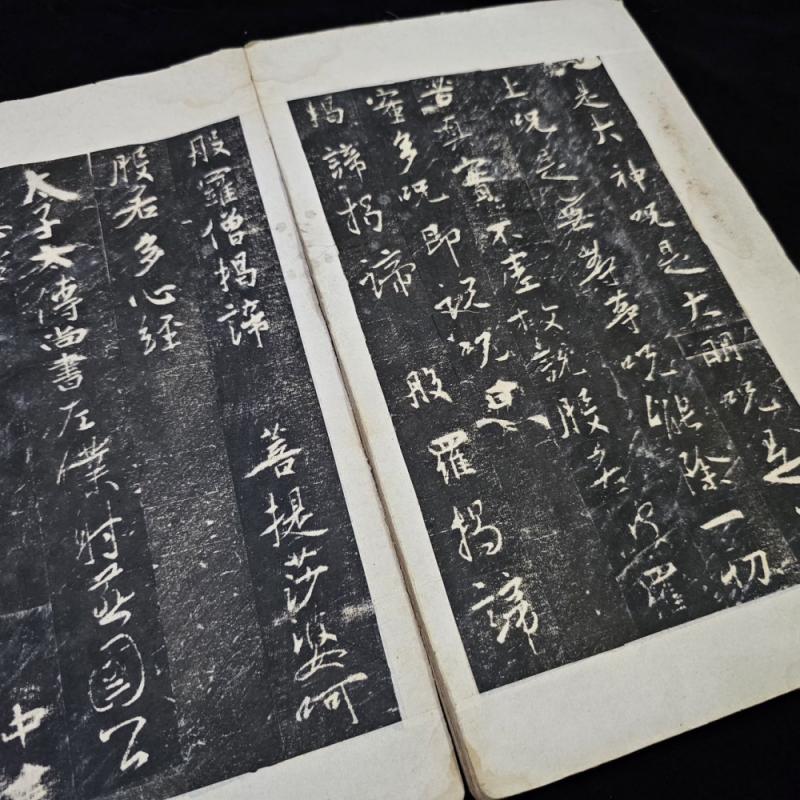 是大神呪是大明呪是
上呪是無等等呪能除一切
苦真實不虛故說般若波羅
蜜多呪即說呪曰
揭諦揭諦 般羅揭諦
般羅僧揭諦 菩提莎婆呵
般若多心經
太子太傅尚書左僕射燕國公
中